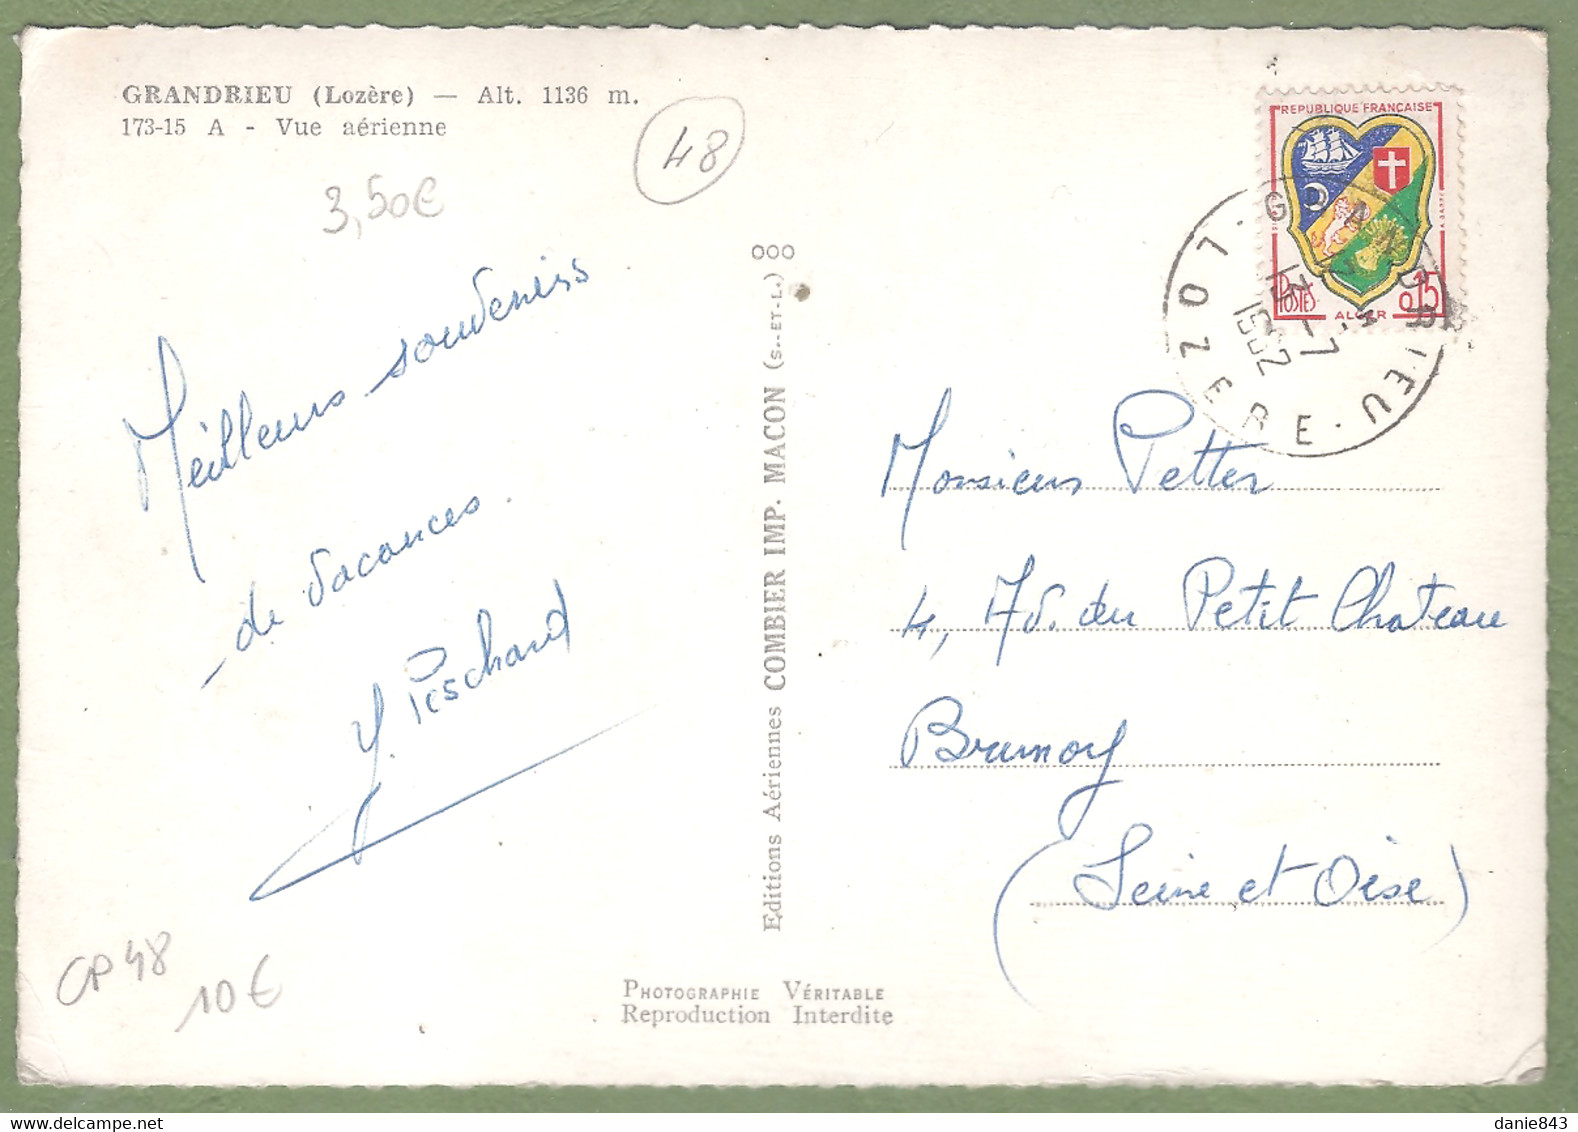 GRANDRIEU (Lozère) — Alt. 1136 m.
173-15 A - Vue aérienne
48
3,50€
Meilleurs souvenirs
de vacances.
CP 48
10€
OOO
Editions Aériennes COMBIER IMP. MACON (S.-ET-L.)
PHOTOGRAPHIE VÉRITABLE
Reproduction Interdite
REPUBLIQUE FRANÇAISE
POSTES
0,15
ALGER
GRANDRIEU
LOZERE
Monsieur Petter
4, du Petit Chateau
Brunoy
(Seine et Oise)
danie843